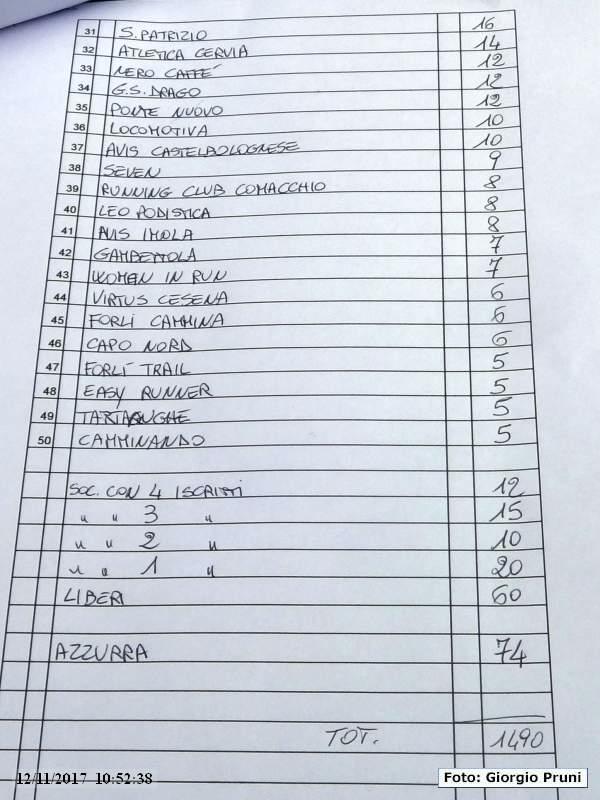 31 S. PATRIZIO 16
32 ATLETICA CERVIA 14
33 NERO CAFFÉ 12
34 G.S. DRAGO 12
35 PONTE NUOVO 12
36 LOCOMOTIVA 10
37 AVIS CASTELBOLOGNESE 10
38 SEVEN 9
39 RUNNING CLUB COMACCHIO 8
40 LEO PODISTICA 8
41 AVIS IMOLA 8
42 GAMBETTOLA 7
43 WOMEN IN RUN 7
44 VIRTUS CESENA 6
45 FORLÌ CAMMINA 6
46 CAPO NORD 6
47 FORLÌ TRAIL 5
48 EASY RUNNER 5
49 TARTARUGHE 5
50 CAMMINANDO 5
SOC. CON 4 ISCRITTI 12
" " 3 " 15
" " 2 " 10
" " 1 " 20
LIBERI 60
AZZURRA 74
TOT. 1490
12/11/2017 10:52:38
Foto: Giorgio Pruni